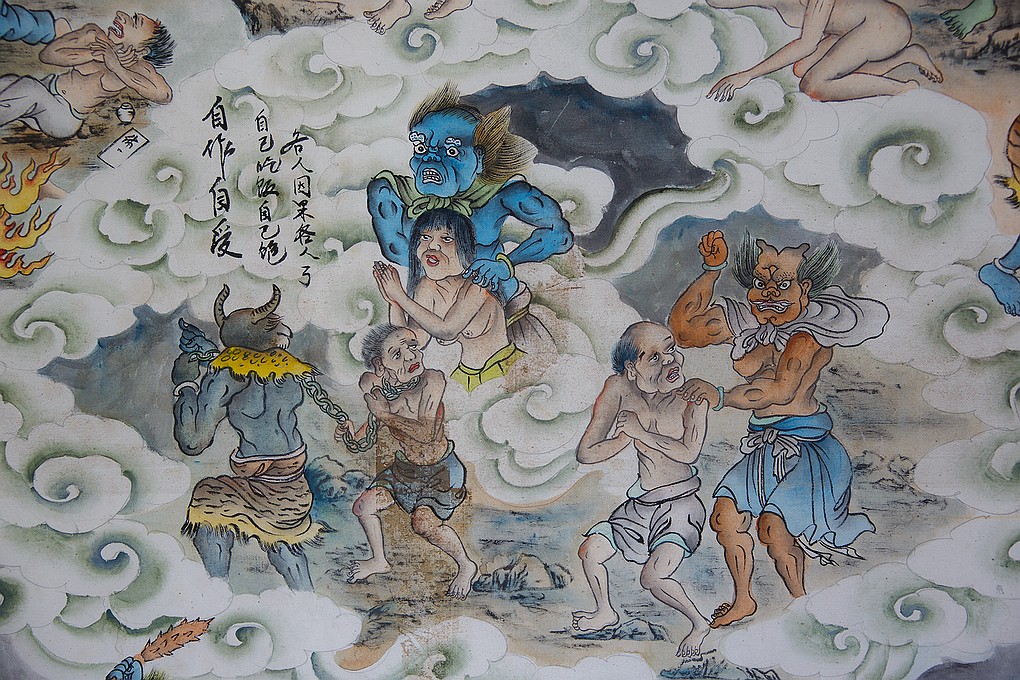 各人因果各人了
自己吃饭自己饱
自作自受